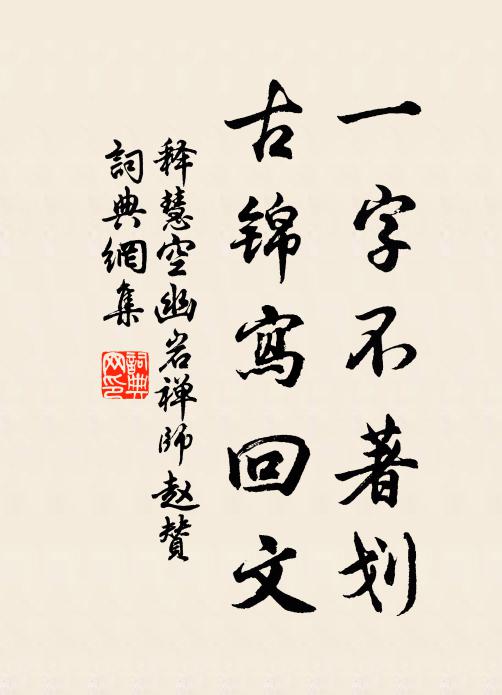 一字不著划
古锦寫回文
释慧空幽岩禅師赵赞
詞典網集
詞典网印